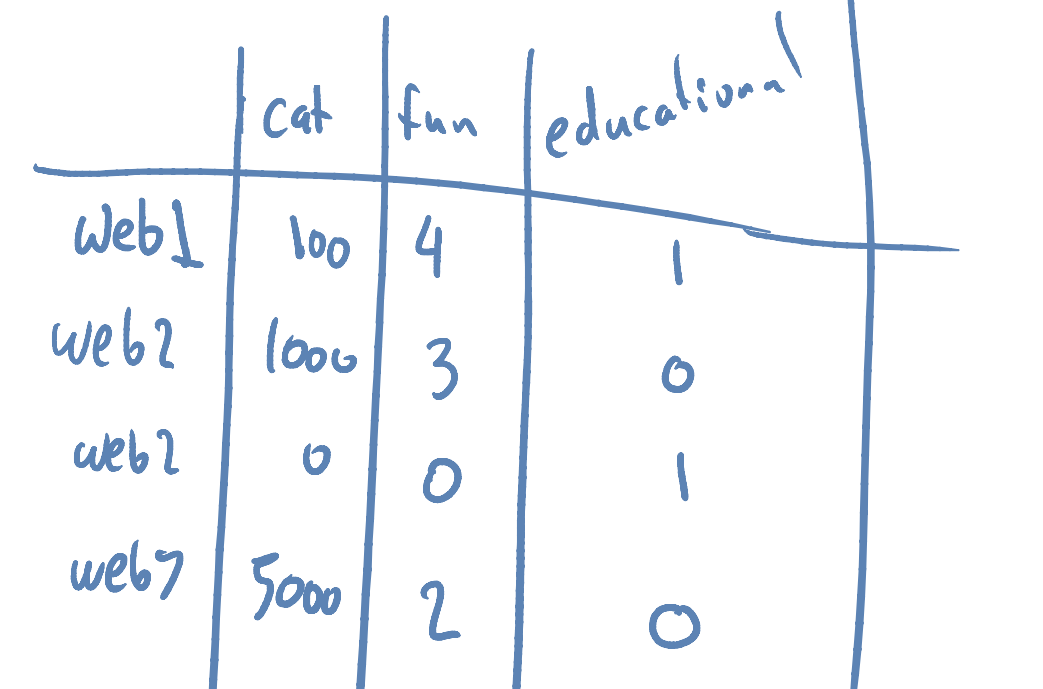 cat fun educational
web1 100 4 1
web2 1000 3 0
web2 0 0 1
web7 5000 2 0